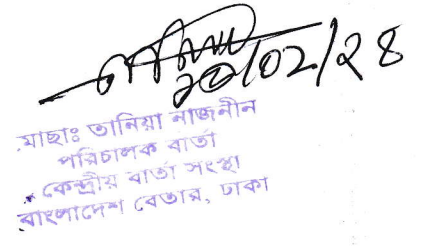 ২০/০২/২৪
মোছাঃ তানিয়া নাজনীন
পরিচালক বার্তা
কেন্দ্রীয় বার্তা সংস্থা
বাংলাদেশ বেতার, ঢাকা